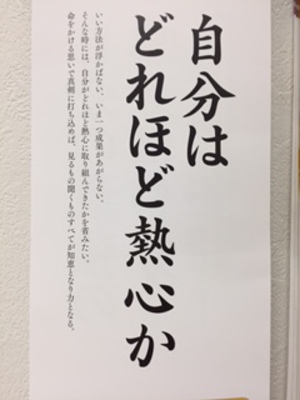 自分は
どれほど熱心か
いい方法が浮かばない、いま一つ成果があがらない。
そんな時には、自分がどれほど熱心に取り組んできたかを省みたい。
命をかける思いで真剣に打ち込めば、見るもの聞くものすべてが知恵となり力となる。